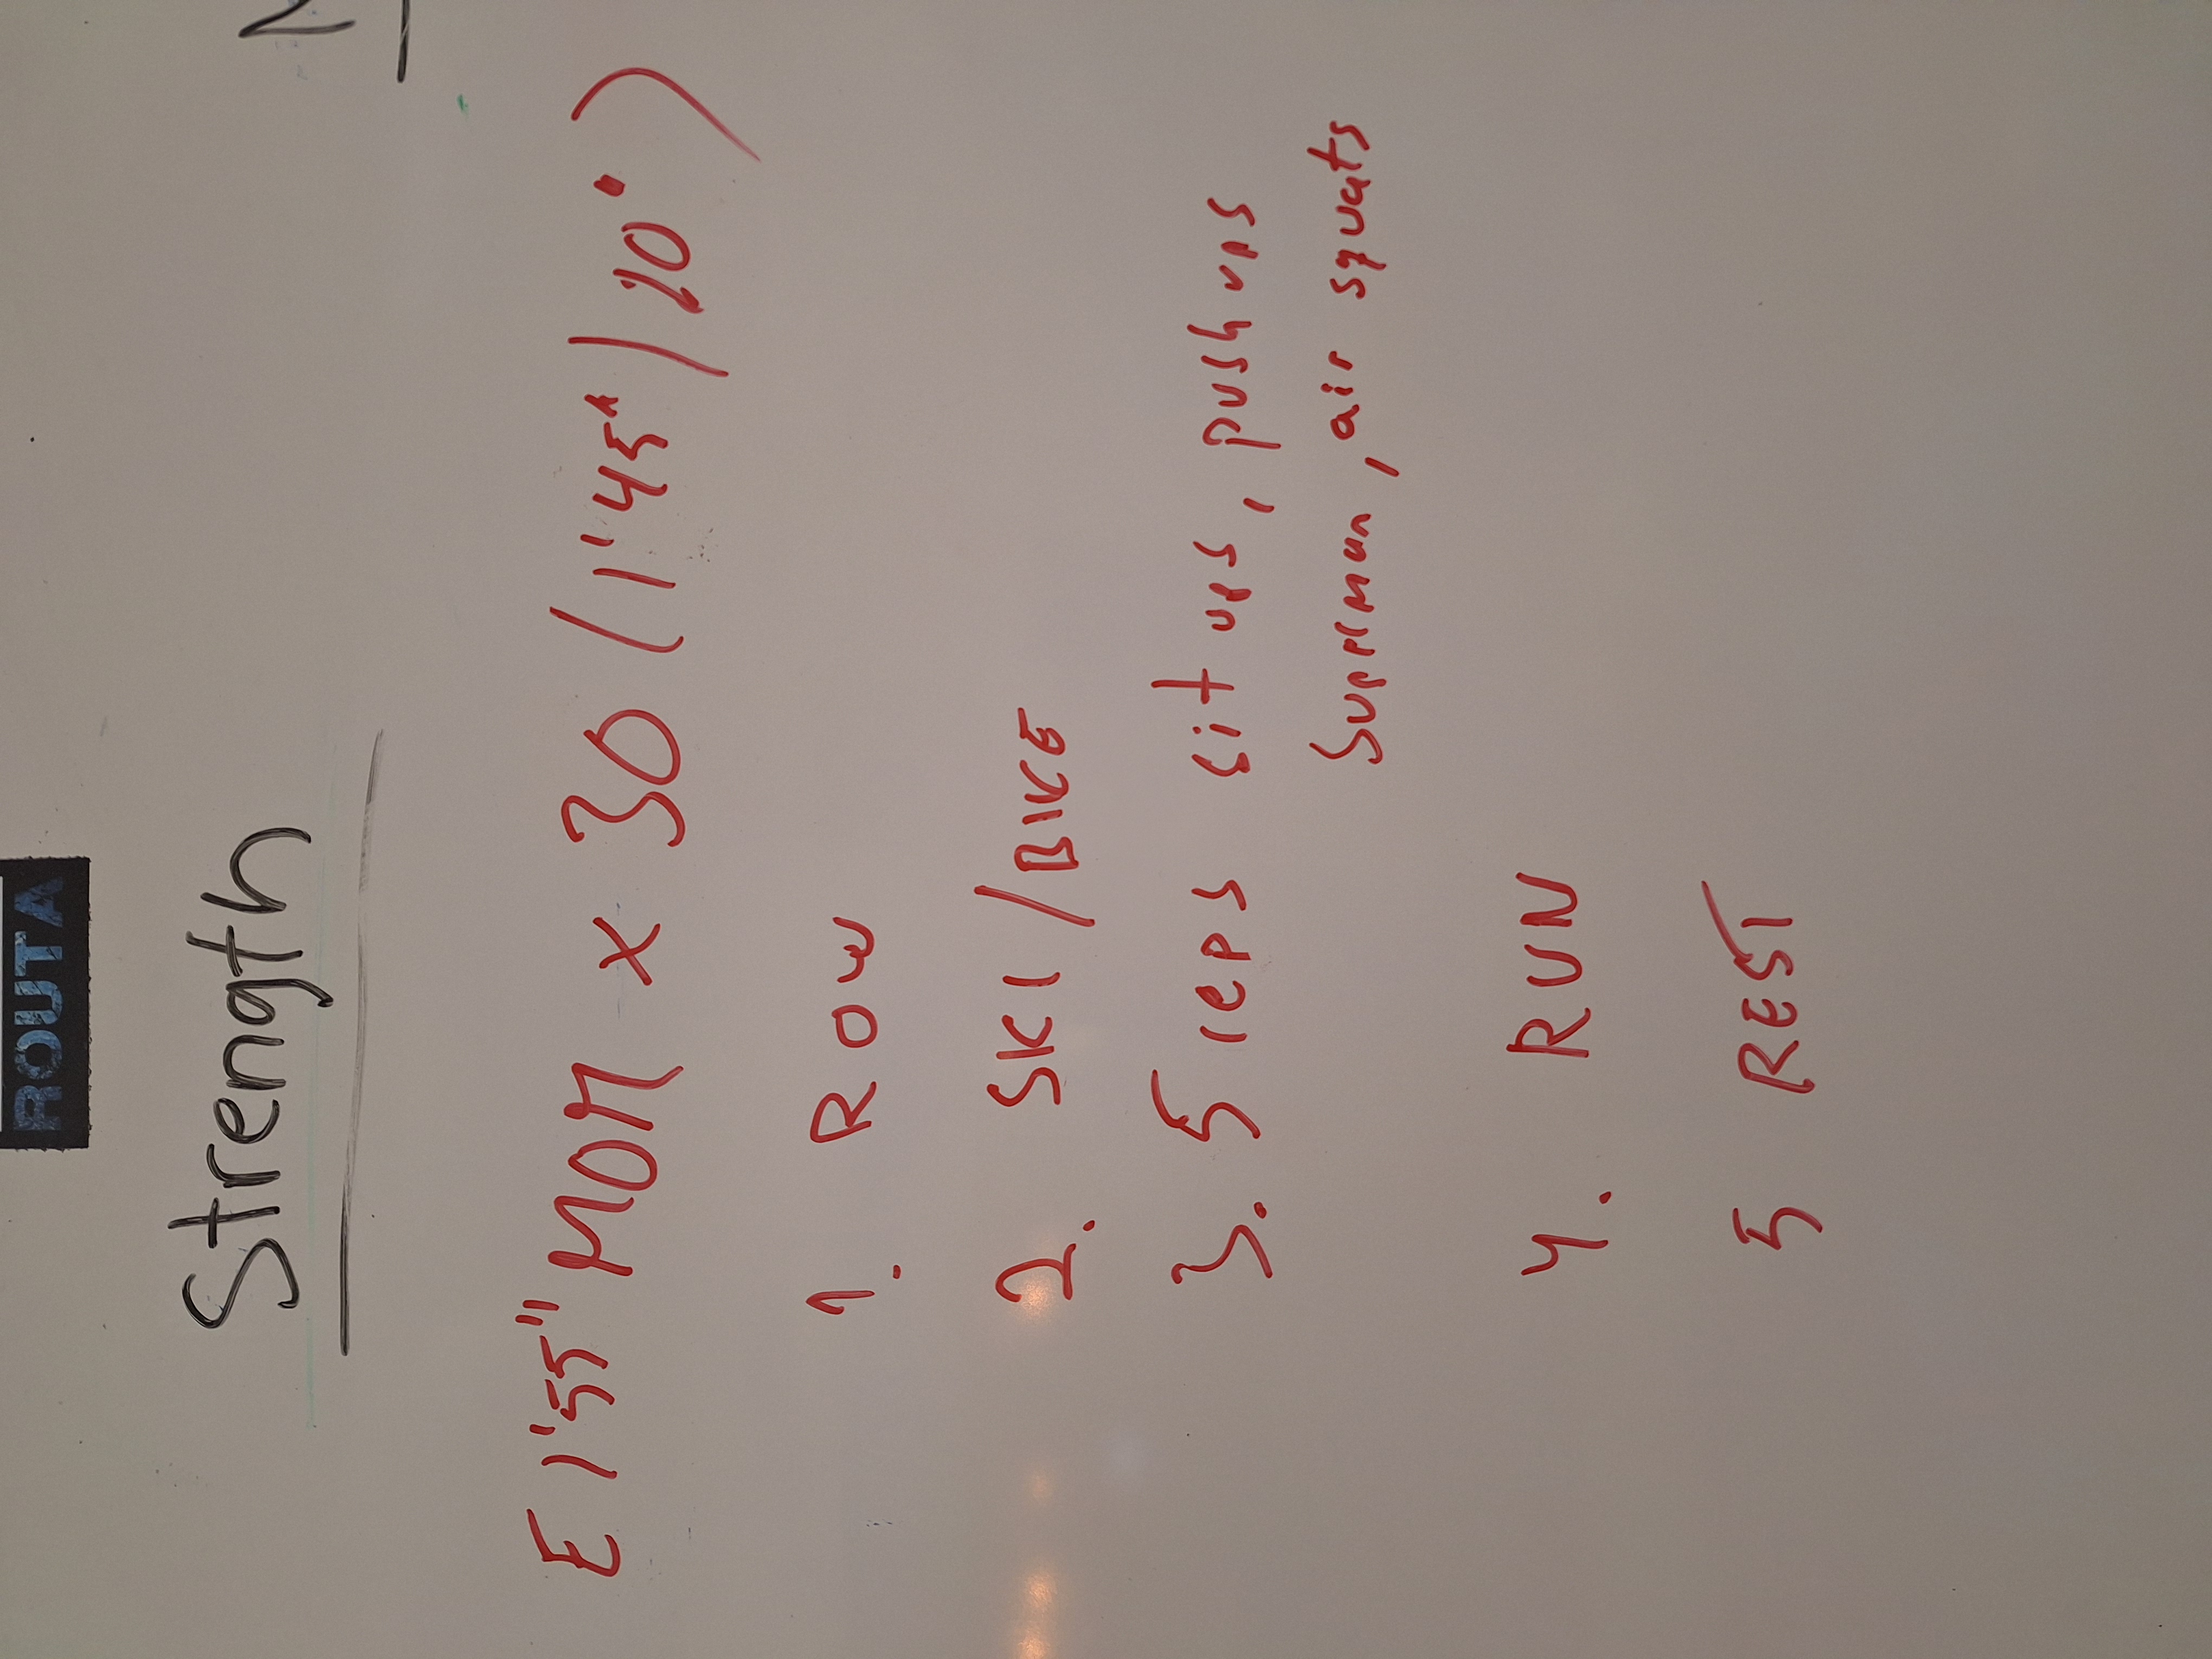 ROUTA
Strength
E 1'55" MOM x 30 (1'45"/10")
1. ROW
2. SKI/BIKE
3. 5 reps sit ups, push ups
Superman, air squats
4. RUN
5 REST